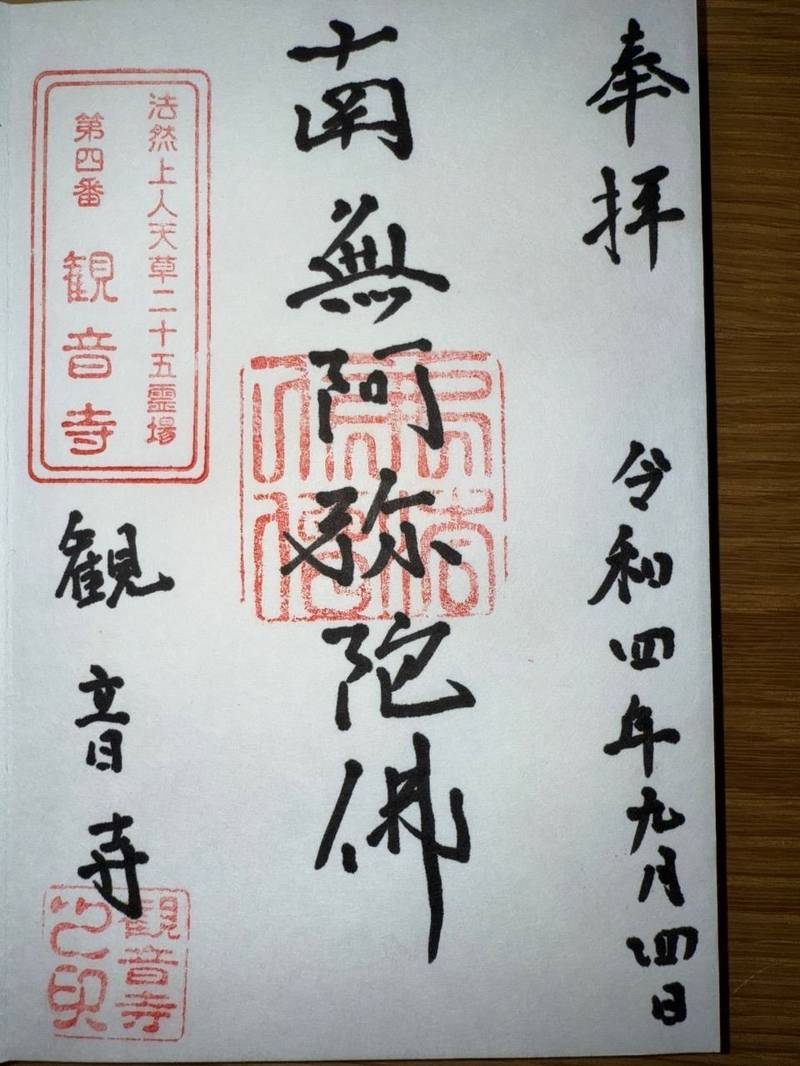 奉拝 令和四年九月四日
南無阿弥陀佛
法然上人天草二十五霊場
第四番 観音寺
観音寺
観音寺
之印